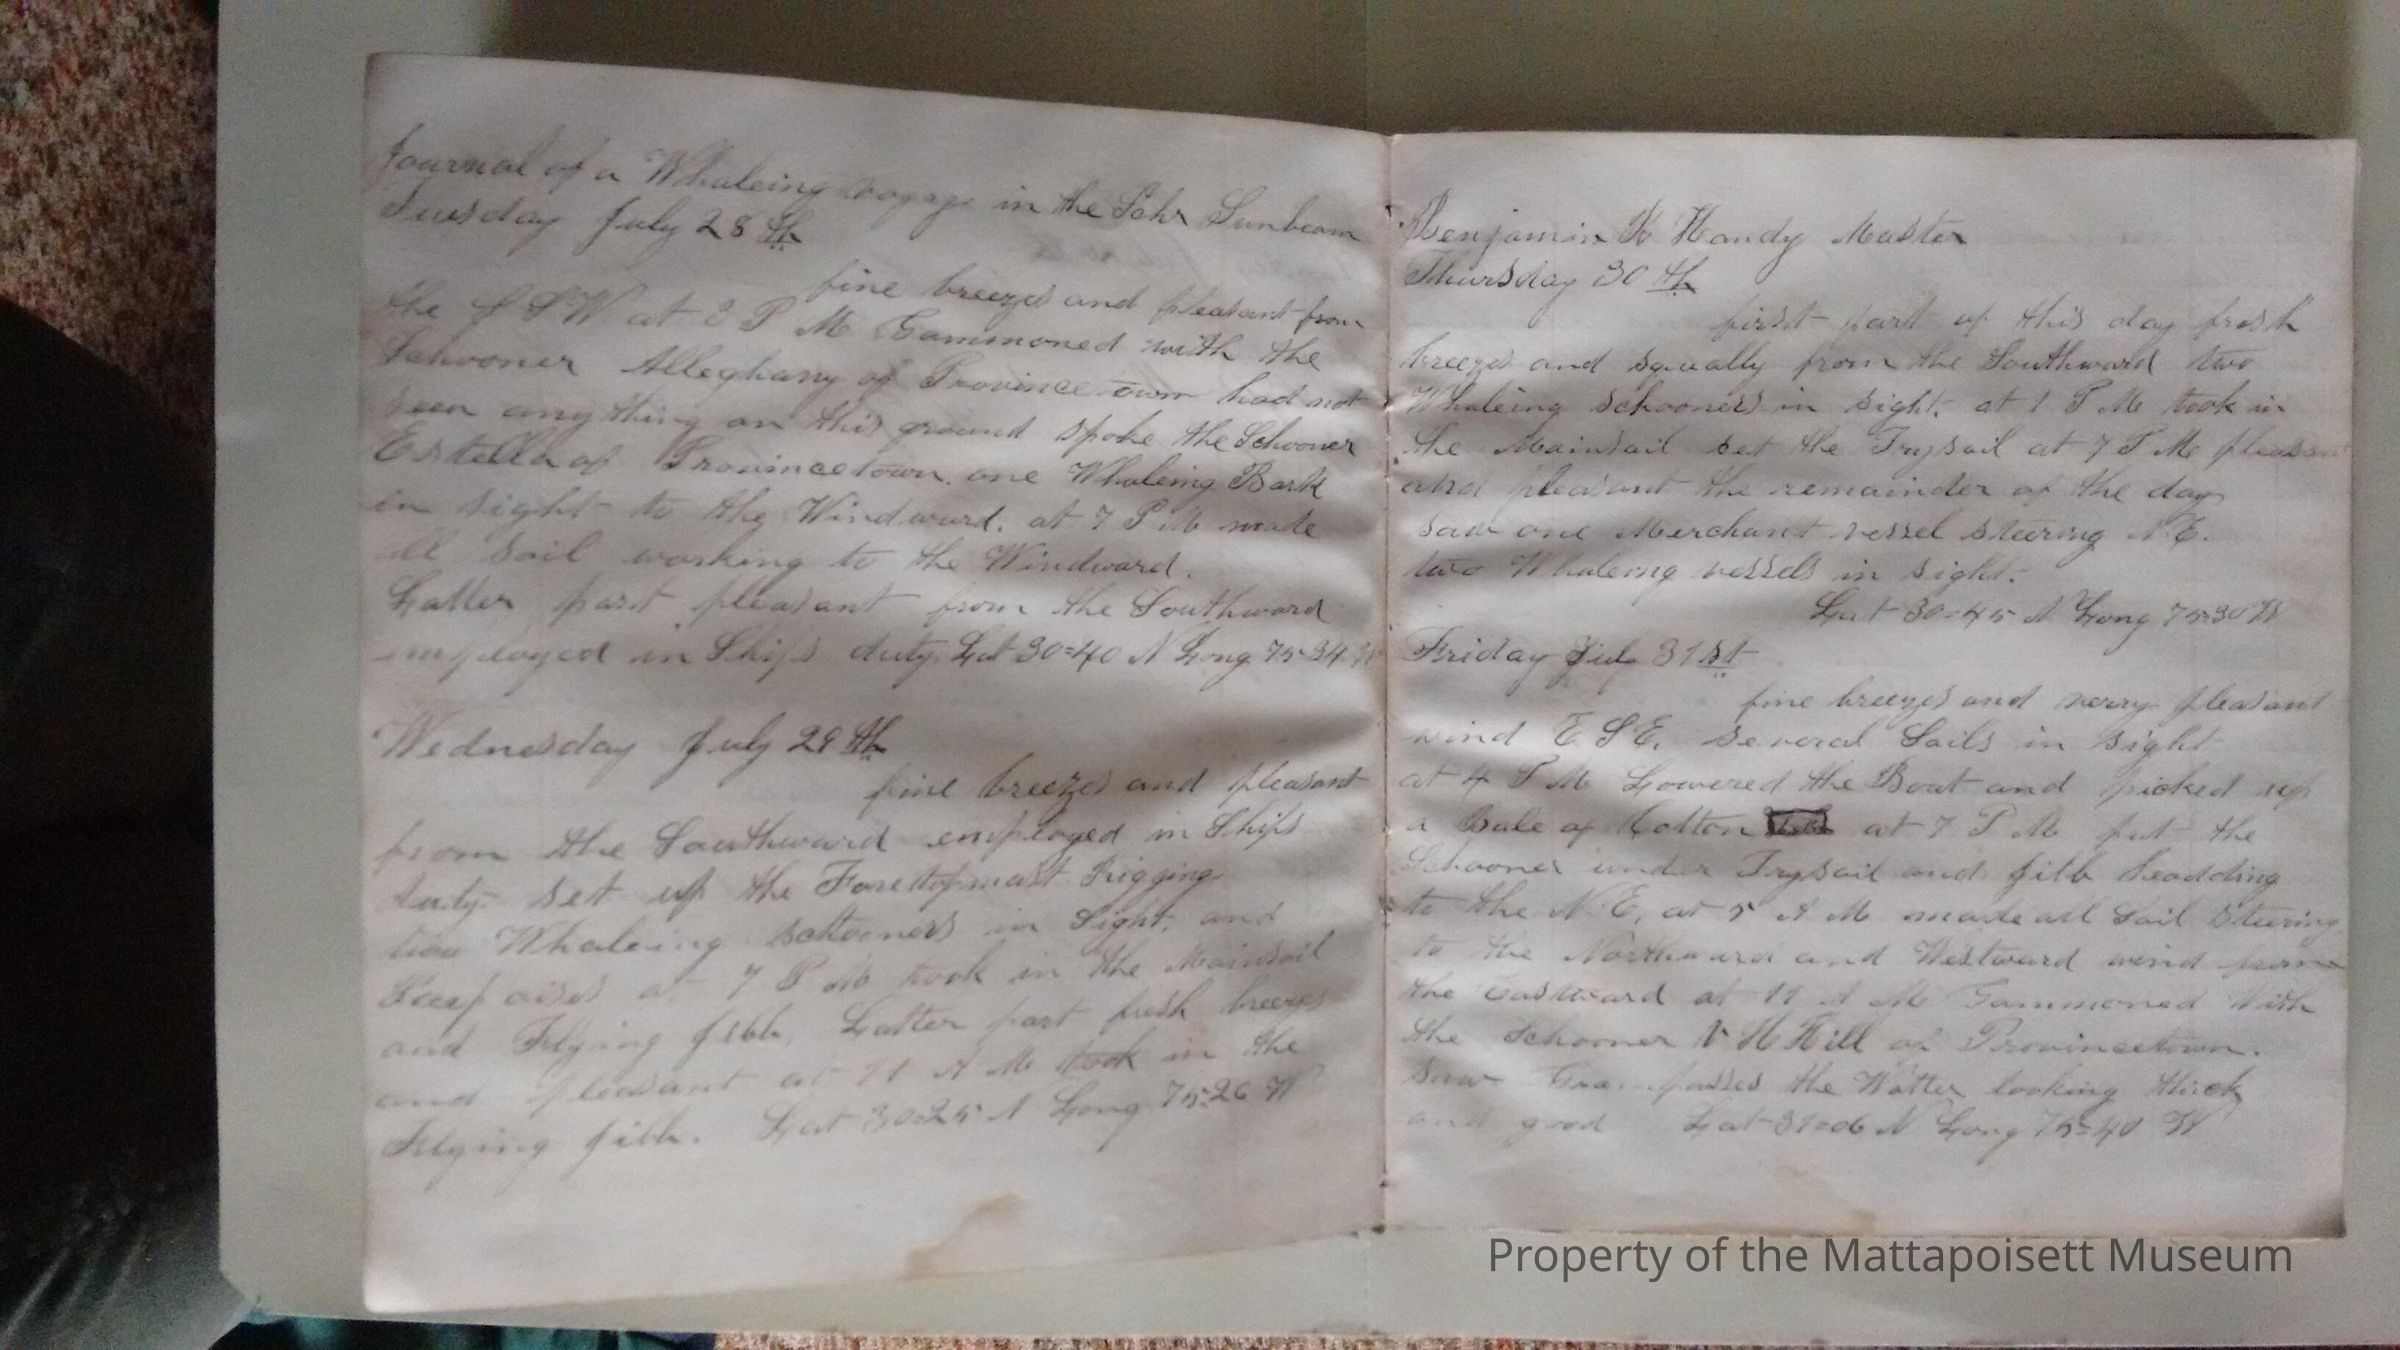 Journal of a Whaleing voyage in the Schr Sunbeam
Tuesday July 28th
fine breezes and pleasant from
the S S W at 2 P M Gammoned with the
Schooner Alleghany of Provincetown had not
seen anything on this ground spoke the Schooner
Estella of Provincetown. one Whaleing Bark
in sight to the Windward. at 7 P M made
all sail working to the Windward.
Latter part pleasant from the Southward
employed in Ships duty. Lat 30=40 N Long 75=34 W
Wednesday July 29th
fine breezes and pleasant
from the Southward employed in Ships
duty. set up the Foretopmast Rigging
two Whaleing schooners in sight, and
at 7 P M took in the Mainsail
and Flying jibb, Latter part fresh breezes
and pleasant at 11 A M took in the
Flying jibb. Lat 30=25 N Long 75=26 W
Benjamin Handy Master
Thursday 30th
first part of this day fresh
breezes and squally from the Southward two
Whaleing schooners in sight. at 1 P M took in
the Mainsail set the Trysail at 7 P M pleasant
and pleasant the remainder of the day
saw one Merchant vessel steering N E.
two Whaleing vessels in sight.
Lat 30=45 N Long 75=30 W
Friday July 31st
fine breezes and verry pleasant
wind E S E. several Sails in sight
at 4 P M Lowered the Boat and picked up
a Bale of Cotton at 7 P M put the
Schooner under Trysail and jibb headding
to the N E, at 5 A M made all Sail steering
to the Northward and Westward wind from
the Eastward at 11 A M Gammoned With
the Schooner Hill of Provincetown.
saw Grampasses the Watter looking thick
and good Lat 31=06 N Long 75=40 W
Property of the Mattapoisett Museum